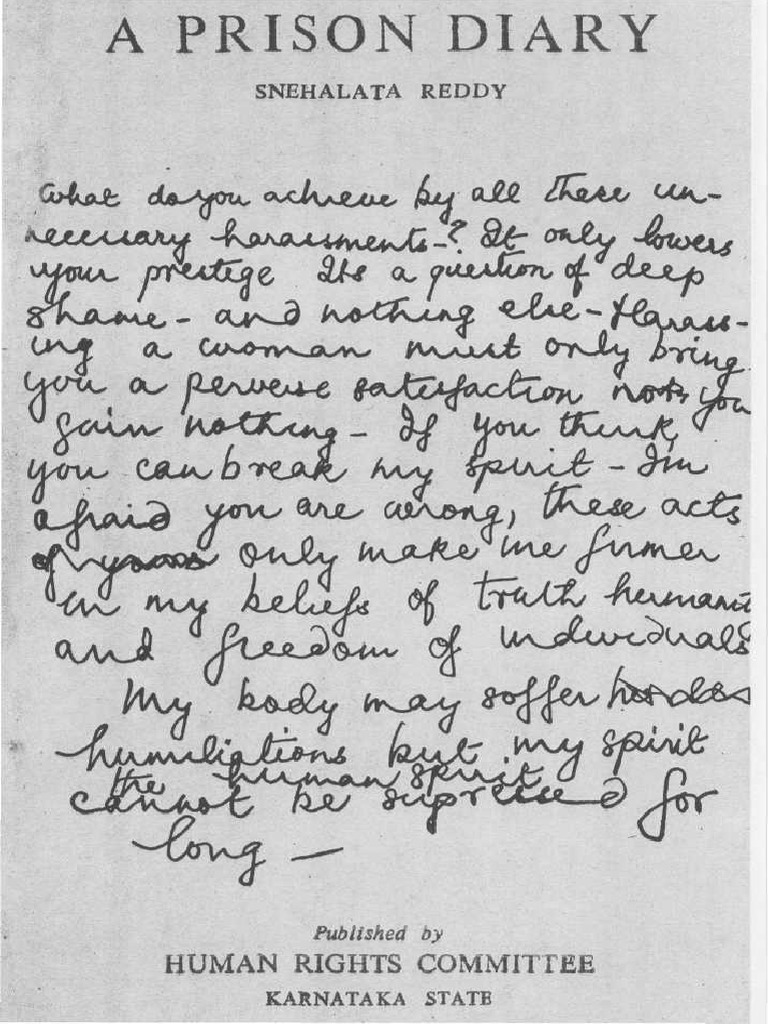 A PRISON DIARY
SNEHALATA REDDY
What do you achieve by all these un-
necessary harassments-? It only lowers
your prestige Its a question of deep
shame - and nothing else - Harass-
ing a woman must only bring
you a perverse satisfaction you
gain nothing - If you think
you can break my spirit - Im
afraid you are wrong, these acts
of only make me firmer
in my beliefs of truth
and freedom of individuals
My body may soffer
humiliations but my spirit
the human spirit
cannot be supressed for
long -
Published by
HUMAN RIGHTS COMMITTEE
KARNATAKA STATE